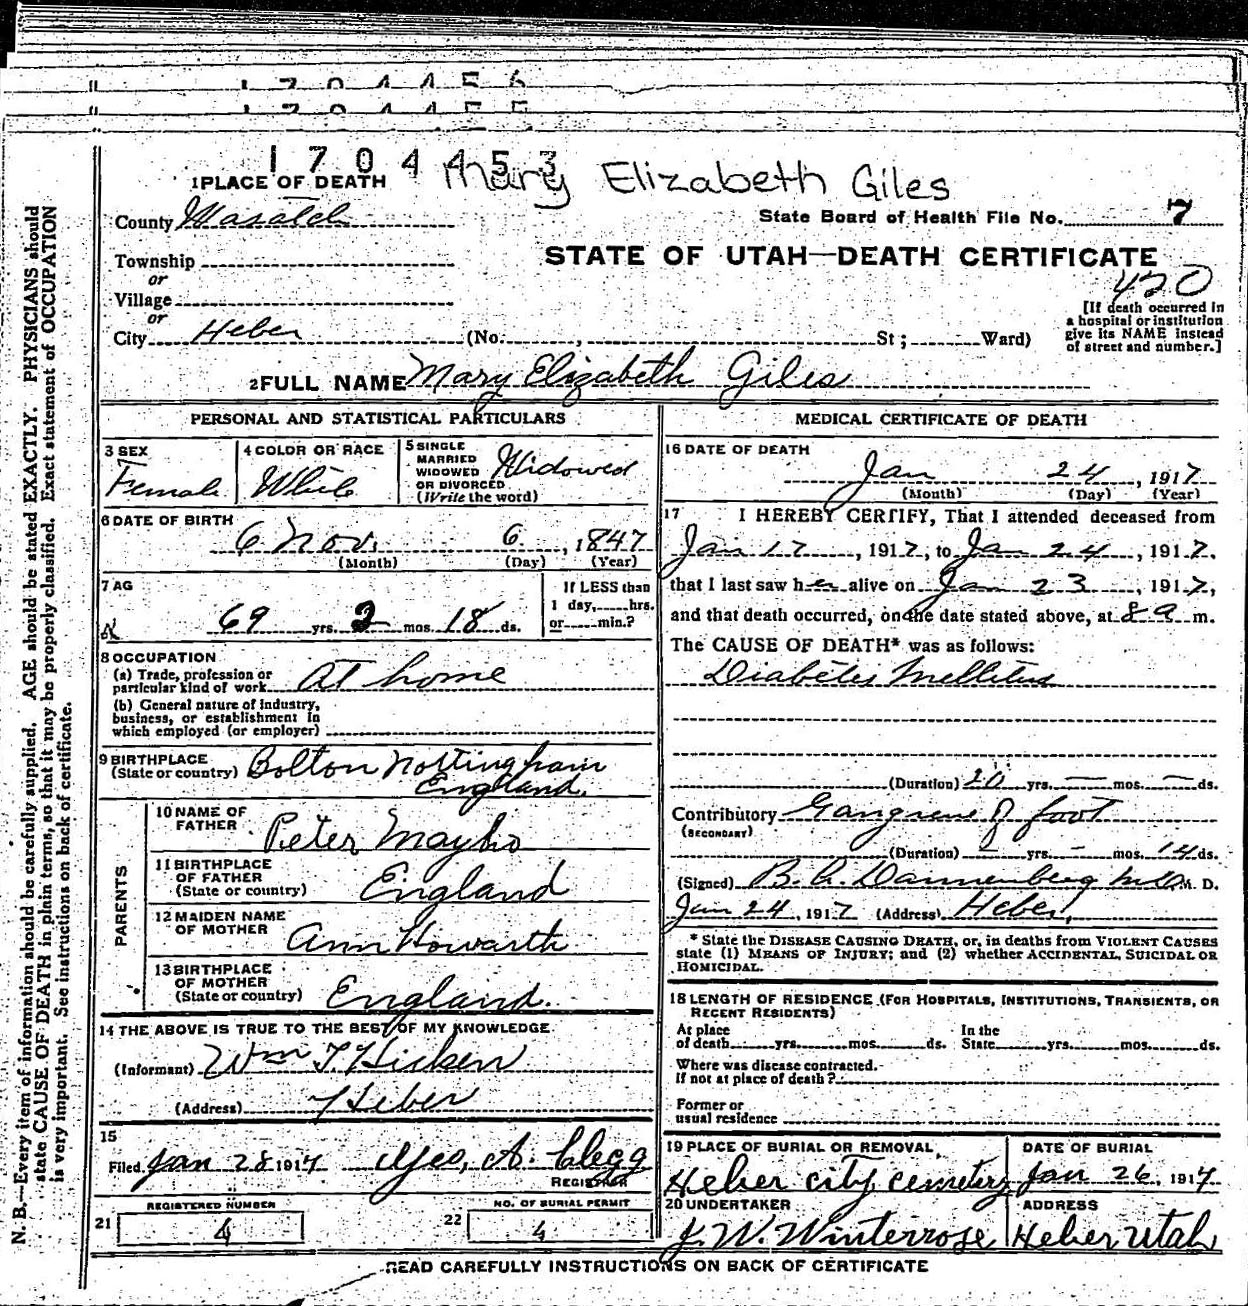 1704456
1704455
1704453
Mary Elizabeth Giles
1 PLACE OF DEATH
County Wasatch
State Board of Health File No. 7
STATE OF UTAH—DEATH CERTIFICATE
420
Township
or
Village
or
City Heber (No. , St ; Ward)
[If death occurred in
a hospital or institution
give its NAME instead
of street and number.]
2 FULL NAME Mary Elizabeth Giles
PERSONAL AND STATISTICAL PARTICULARS
3 SEX
Female
4 COLOR OR RACE
White
5 SINGLE
MARRIED
WIDOWED
OR DIVORCED
(Write the word)
Widowed
6 DATE OF BIRTH
6 Nov. 6. , 1847
(Month) (Day) (Year)
7 AG
69 yrs. 2 mos. 18 ds.
If LESS than
1 day, hrs.
or min.?
8 OCCUPATION
(a) Trade, profession or
particular kind of work At home
(b) General nature of industry,
business, or establishment in
which employed (or employer)
9 BIRTHPLACE
(State or country) Bolton Nottingham
England.
PARENTS
10 NAME OF
FATHER Peter Mayho
11 BIRTHPLACE
OF FATHER
(State or country) England
12 MAIDEN NAME
OF MOTHER Ann Howarth
13 BIRTHPLACE
OF MOTHER
(State or country) England.
14 THE ABOVE IS TRUE TO THE BEST OF MY KNOWLEDGE
(Informant) Wm T. Hicken
(Address) Heber
15
Filed Jan 28 1917 Geo. A. Clegg
REGISTRAR
REGISTERED NUMBER
21 4
NO. OF BURIAL PERMIT
22 4
MEDICAL CERTIFICATE OF DEATH
16 DATE OF DEATH
Jan 24 , 1917
(Month) (Day) (Year)
17 I HEREBY CERTIFY, That I attended deceased from
Jan 17 , 1917, to Jan 24 , 1917,
that I last saw her alive on Jan 23 , 1917,
and that death occurred, on the date stated above, at 8 a m.
The CAUSE OF DEATH* was as follows:
Diabetes Mellitus
(Duration) 20 yrs. — mos. — ds.
Contributory Gangrene of foot
(SECONDARY)
(Duration) — yrs. - mos. 14 ds.
(Signed) B. A. Dannenberg M.D. M. D.
Jan 24 , 1917 (Address) Heber,
* State the DISEASE CAUSING DEATH, or, in deaths from VIOLENT CAUSES
state (1) MEANS OF INJURY; and (2) whether ACCIDENTAL, SUICIDAL OR
HOMICIDAL.
18 LENGTH OF RESIDENCE (FOR HOSPITALS, INSTITUTIONS, TRANSIENTS, OR
RECENT RESIDENTS)
At place
of death yrs. mos. ds.
In the
State yrs. mos. ds.
Where was disease contracted.
If not at place of death?
Former or
usual residence
19 PLACE OF BURIAL OR REMOVAL
Heber city cemetery
DATE OF BURIAL
Jan 26, 1917
20 UNDERTAKER
J. W. Winterrose
ADDRESS
Heber Utah
READ CAREFULLY INSTRUCTIONS ON BACK OF CERTIFICATE
N. B.—Every item of information should be carefully supplied. AGE should be stated EXACTLY. PHYSICIANS should
state CAUSE OF DEATH in plain terms, so that it may be properly classified. Exact statement of OCCUPATION
is very important. See instructions on back of certificate.